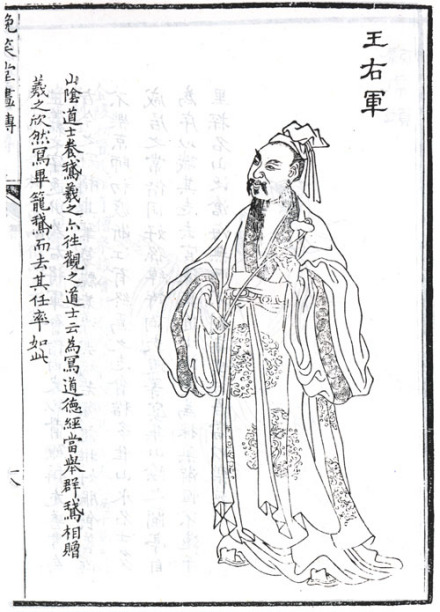 王右軍
山陰道士養鵝羲之亦往觀之道士云為寫道德經當舉群鵝相贈
羲之欣然寫畢籠鵝而去其任率如此
晚笑堂畫傳